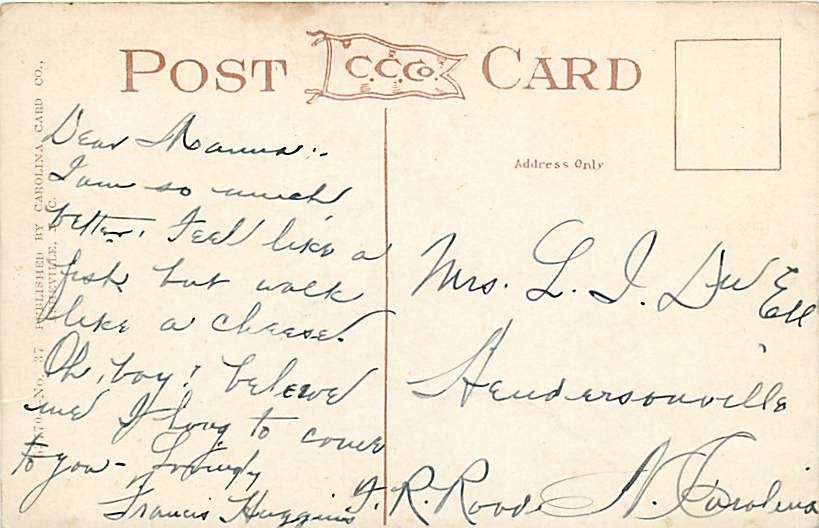 POST C.C.Co. CARD
Address Only
PUBLISHED BY CAROLINA CARD CO.,
No. 37
Dear Mamma:-
I am so much
better. Feel like a
fish but walk
like a cheese.
Oh, boy! believe
me I long to come
to you - Lovingly
Francis Huggins
Mrs. L. I. Du Ell
Hendersonville
R. Road N. Carolina